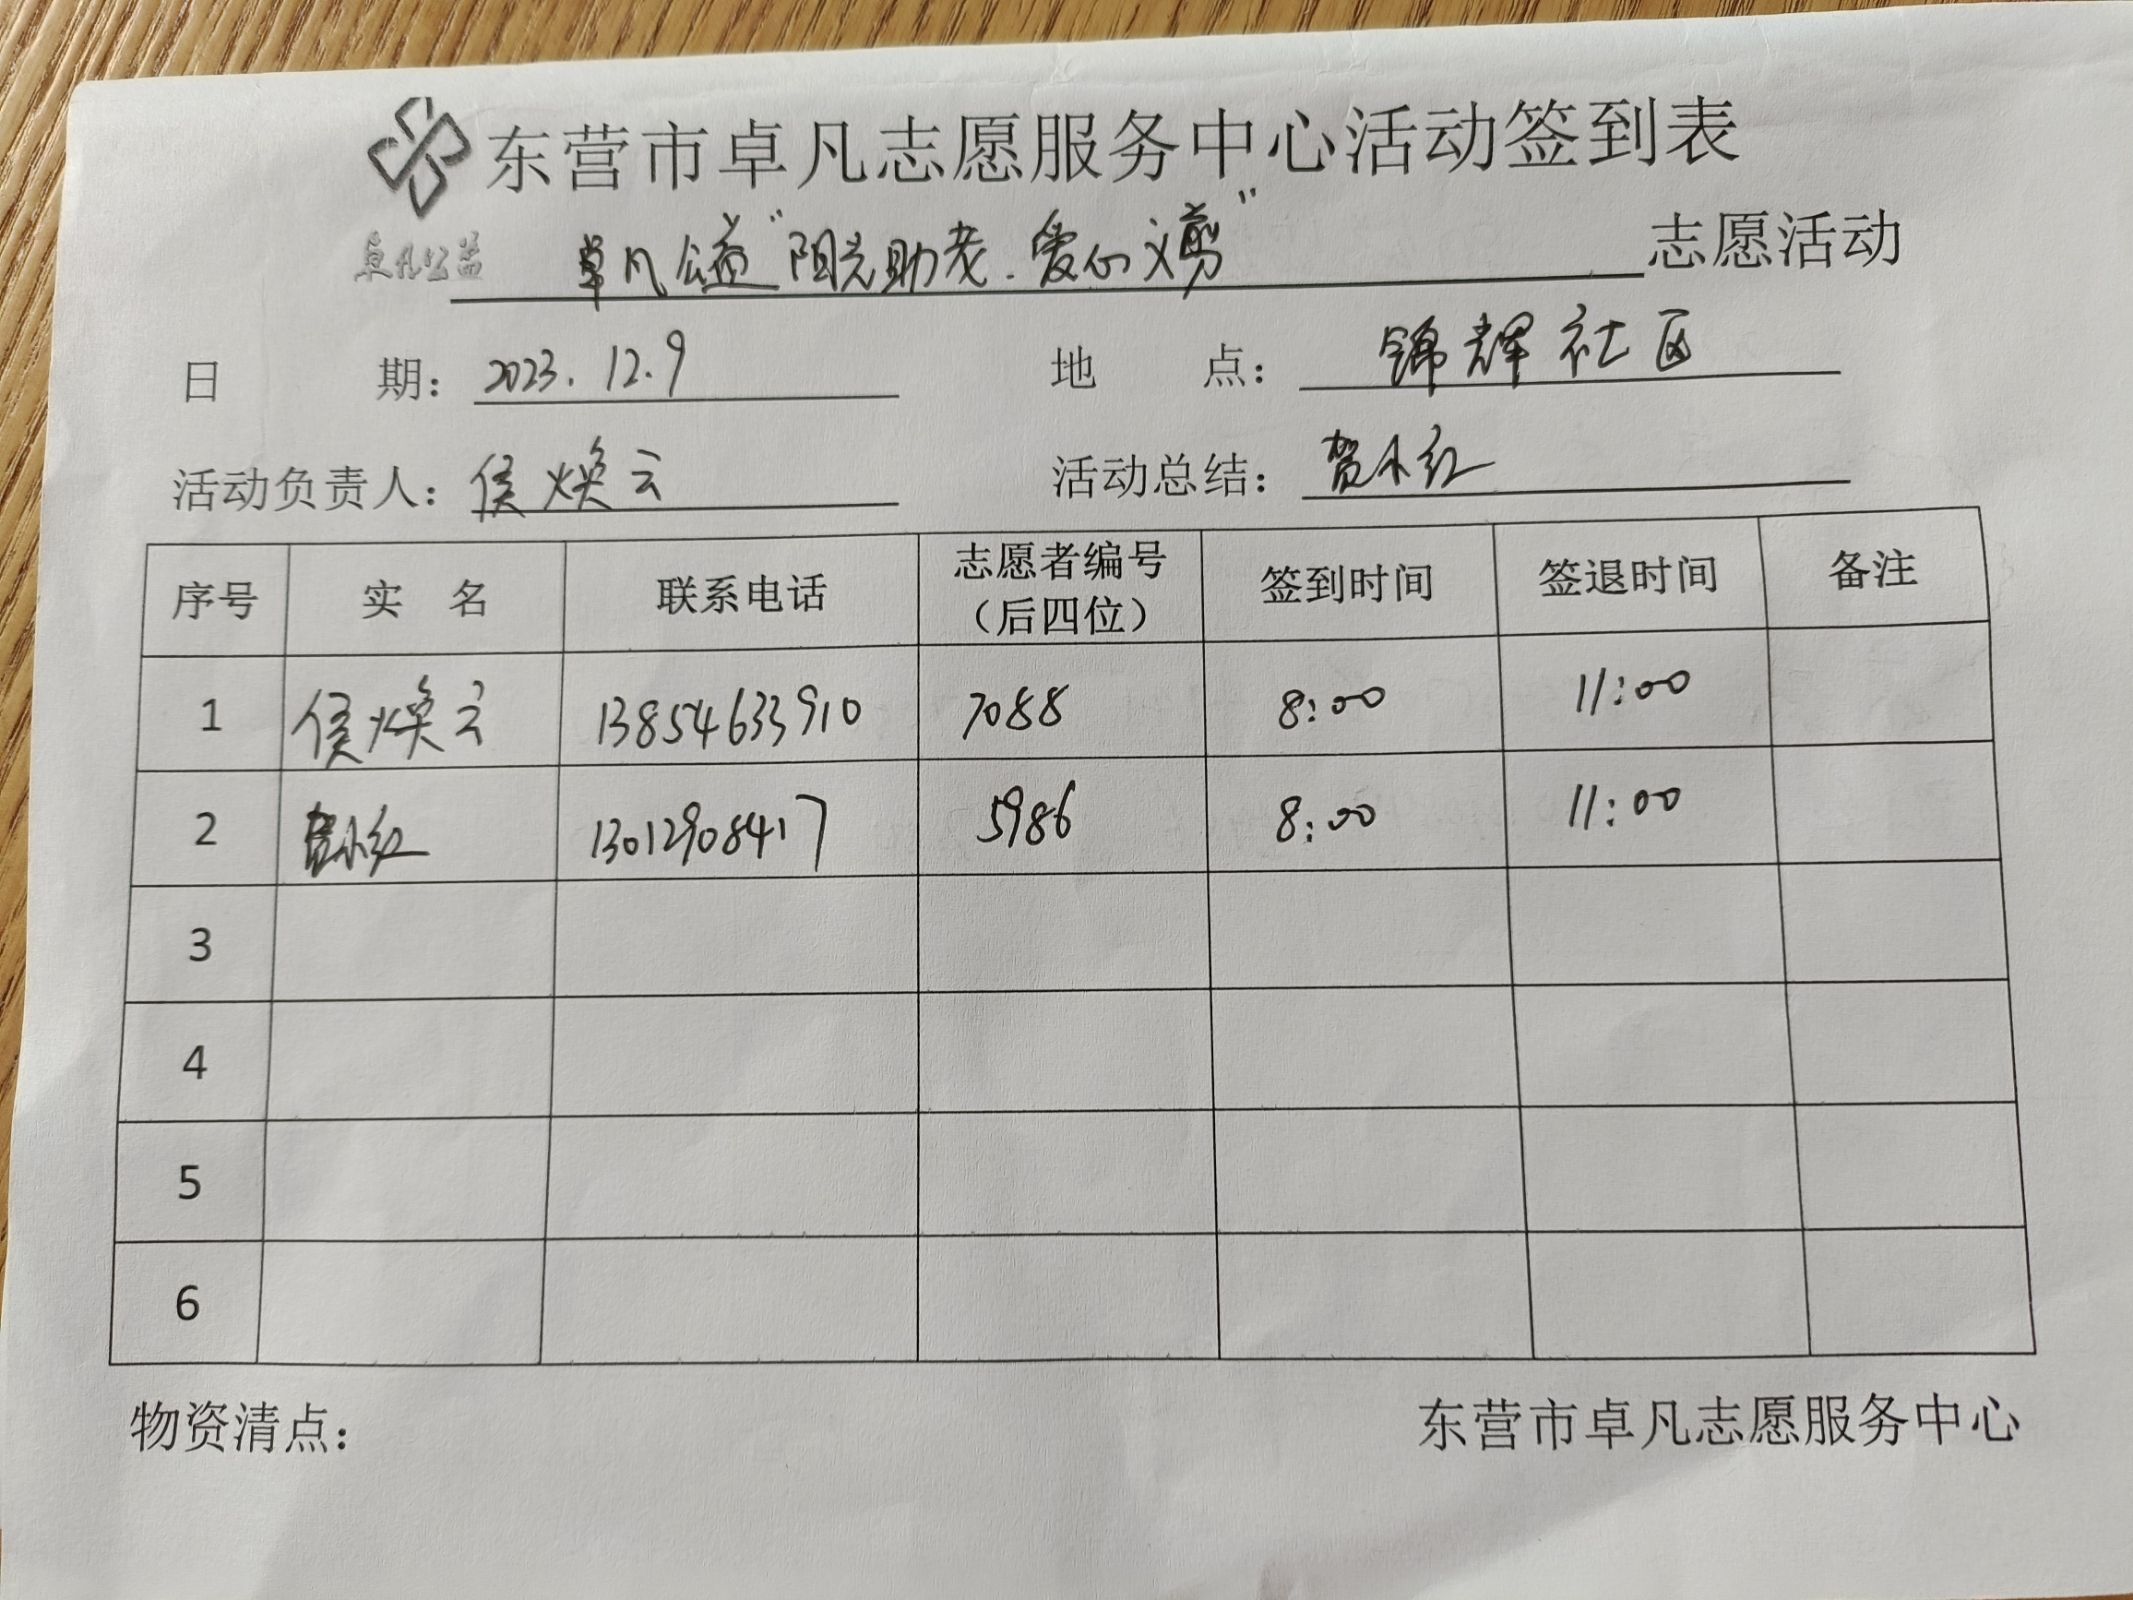 东营市卓凡志愿服务中心活动签到表
卓凡公益
卓凡公益"阳光助老.爱心义剪"志愿活动
日期：2023.12.9 地点：锦辉社区
活动负责人：侯焕云 活动总结：贺小红
序号 实名 联系电话 志愿者编号（后四位） 签到时间 签退时间 备注
1 侯焕云 13854633910 7088 8:00 11:00
2 贺小红 13012908417 5986 8:00 11:00
3
4
5
6
物资清点： 东营市卓凡志愿服务中心